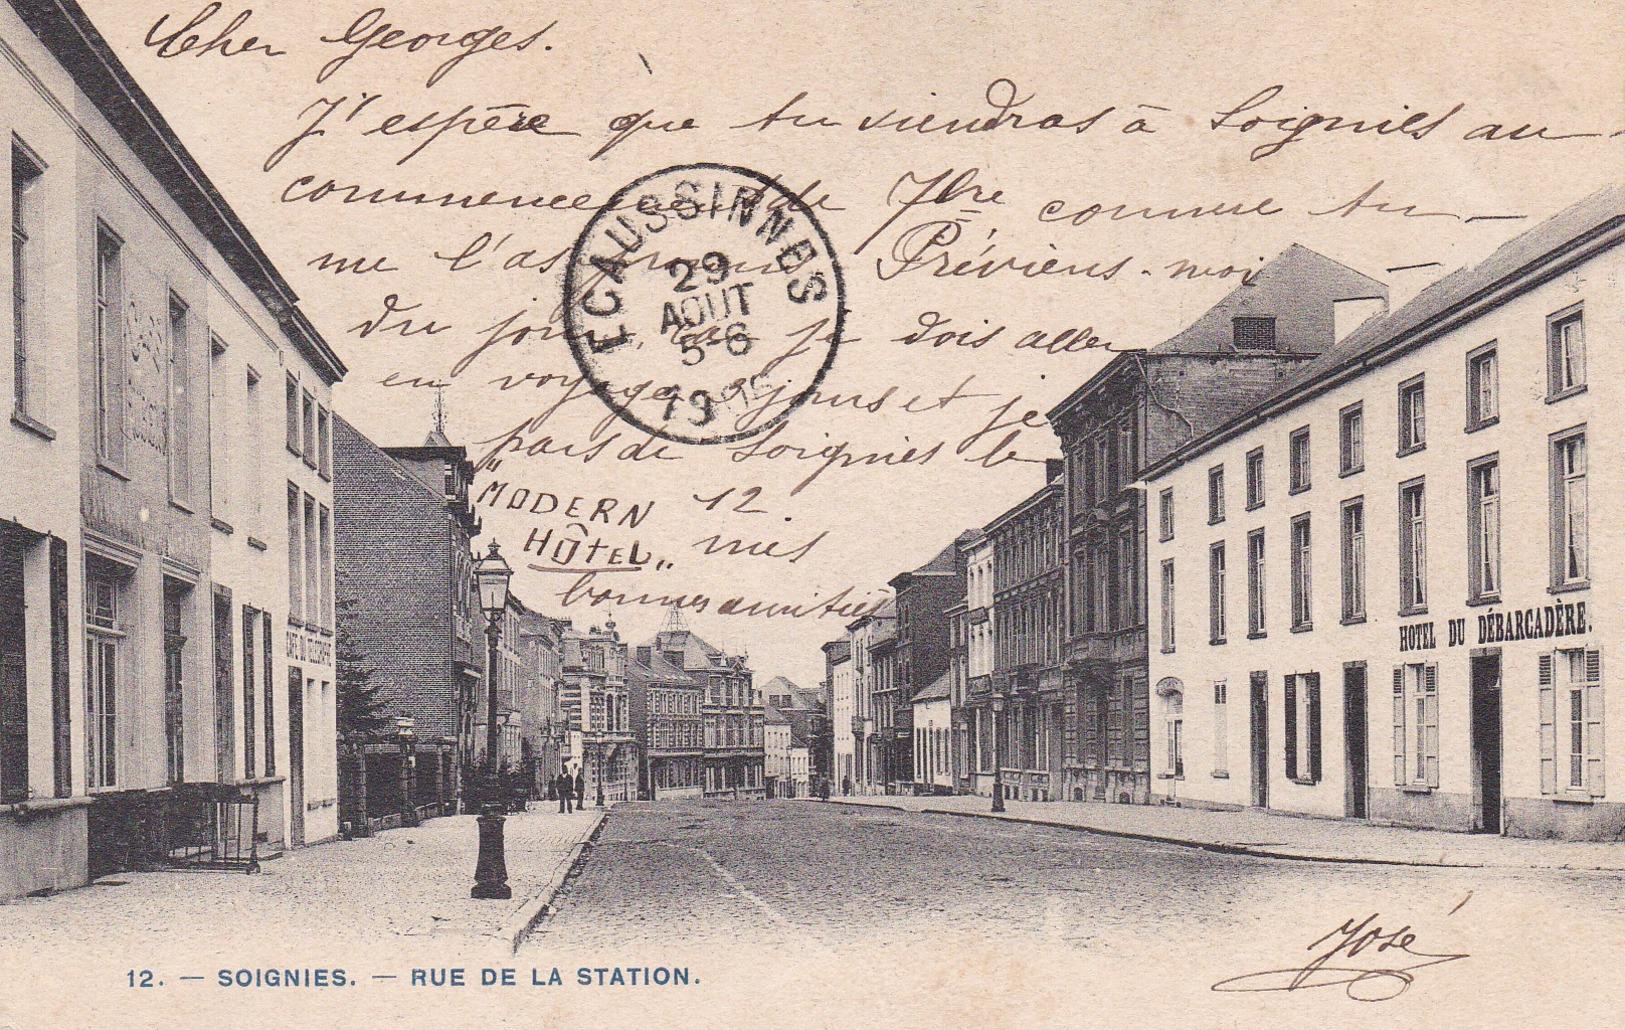 Cher Georges.
J'espère que tu viendras à Soignies au
commencement de 7bre comme tu
me l'as promis. Préviens-moi
du jour, car je dois aller
en voyage jours et je
pars de Soignies le
12
mes
bonnes amitiés
"MODERN
HÔTEL"
ECAUSSINNES
29
AOUT
5-6
19
CAFÉ DU TÉLÉGRAPHE
HOTEL DU DÉBARCADÈRE.
José
12. — SOIGNIES. — RUE DE LA STATION.